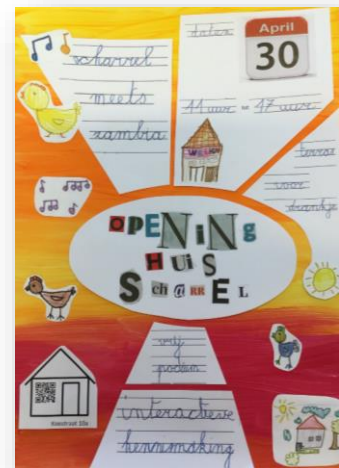 scharrel
meets
zambia
daten
April
30
11 uur - 17 uur
WELKOM
terras
voor
drankje
OPENiNg
HUiS
SCh@RREL
vrij
podium
interactieve
kennismaking